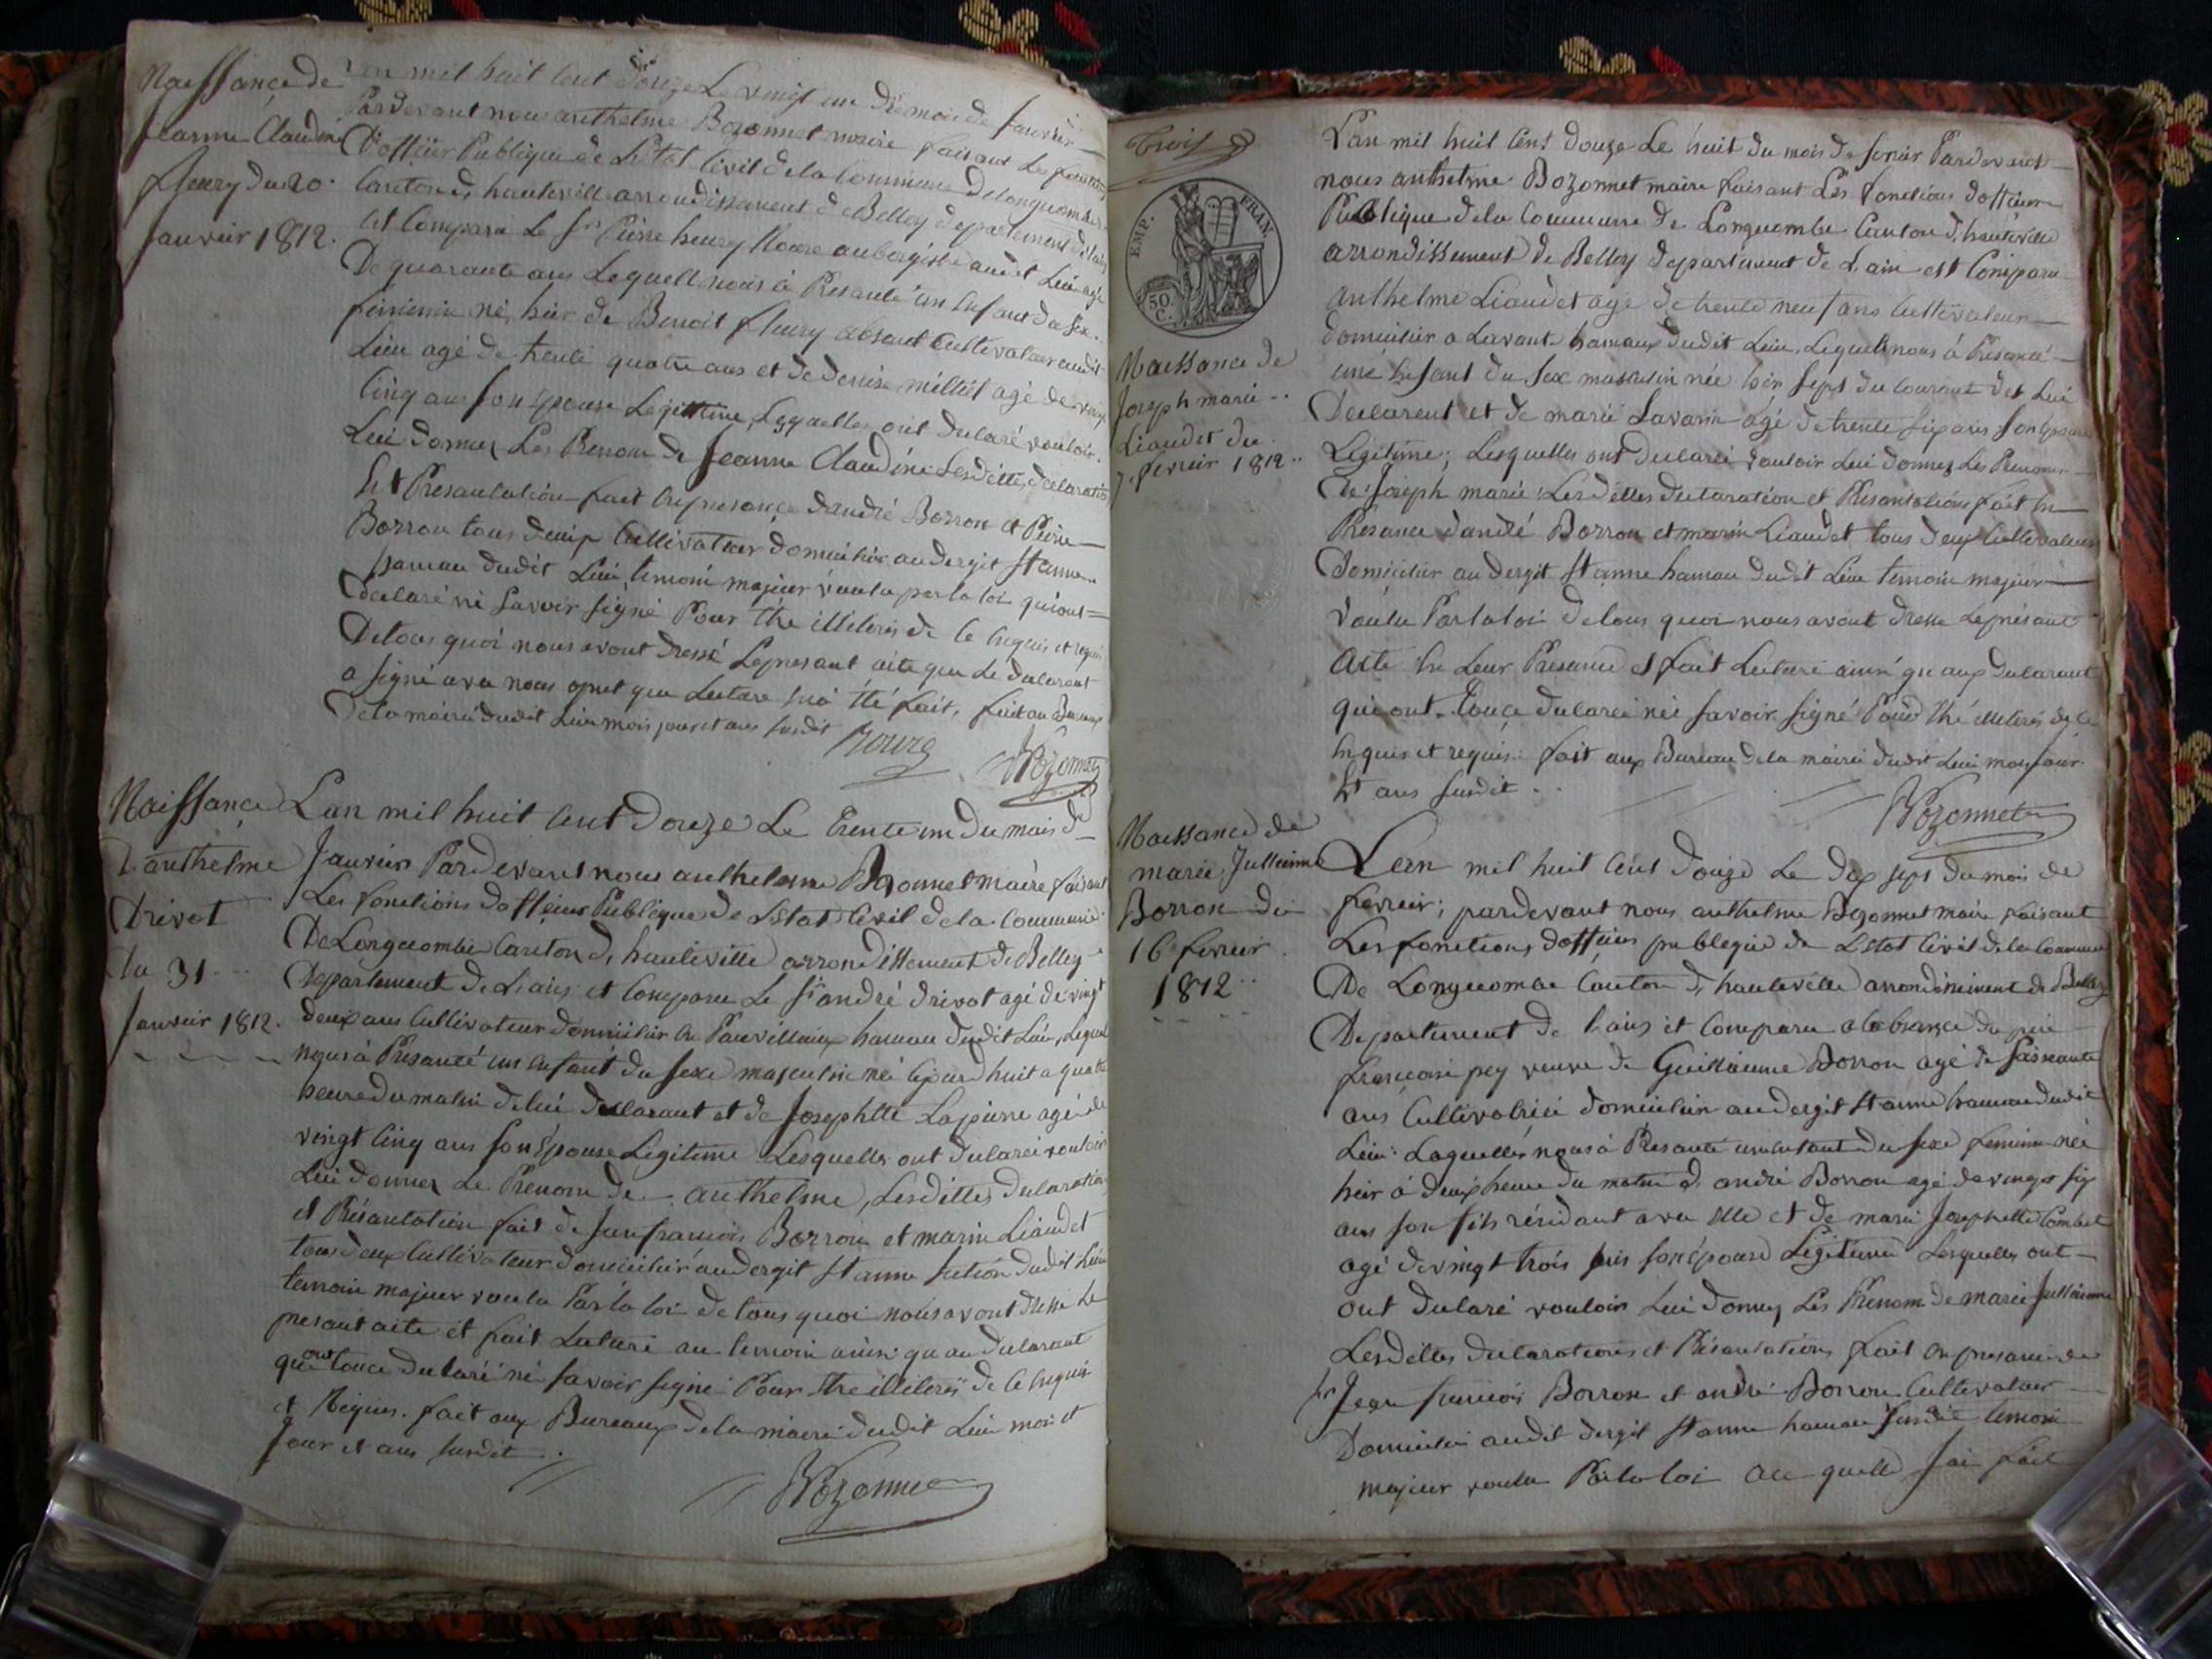 Naissance de
Jeanne Claudine
fleury du 20
Janvier 1812.
L'an mil huit Cent Douze Le vingt un du mois de Janvier
Pardevant nous anthelme Bozonnet maire faisant Les fonctions
D'officier Publique de L'etat Civil de la Commune De longecombe
Canton d, hauteville arrondissement de Belley departement de L'ain
est Comparu Le sr Pierre henry aubergiste audit Lieu agé
De quarante ans Lequell nous à Presanté un Enfant du sex
feminin né, hier de Benoit fleury absent Cultivateur audit
Lieu agé de trente quatre ans et de denise milliet agé de vingt
Cinq ans son Epouse Legittime, Lesquelles ont declaré vouloir
Lui donner Les Prenom de Jeanne Claudine Lesdittes declaration
Et Presantation fait En presance dandré Borron et Pierre
Borron tous deux Cultivateur domicilier au dergit st anne
hamau dudit Lieu, temoin majeur voulu par la loi qui ont
declaré né savoir signé Pour être illiteris de Ce Enquis et requis
De tous quoi nous avont dressé Lepresant acte que Le declarant
a signé avec nous apret que Lecture en à été fait, fait au Bureaux
De la mairie dudit Lieu mois jour et ans susdit
Bozonnet
Naissance
D'anthelme
Drivot
du 31
Janvier 1812.
Lan mil huit Cent Douze Le Trente un du mois de
Janvier Pardevant nous anthelme Bozonnet maire faisant
Les fonctions dofficier Publique de Lstat Civil de la Commune
De Longecombe Canton d, hauteville arrondissement de Belley
Departement de L'ain est Comparu Le sr andré drivot agé de vingt
deux ans Cultivateur domicilier En hamau dudit Lieu, Lequel
nous à Presanté un Enfant du sexe masculin né aujourd huit a quatre
heure du matin de lui declarant et de Josephtte Lapierre agé de
vingt Cinq ans son Epouse Legitime Lesquelles ont declaré vouloir
Lui donner Le Prenom de anthelme, Lesdittes declaration
et Présantation fait de Jean francois Borron et marin Liaudet
tous deux Cultivateur domicilier au dergit st anne section dudit Lieu
temoin majeur voulu Par la loi de tous quoi nous avont dressé Le
presant acte et fait Lecture au temoin ainsi qu au declarant
qui ont touce declaré né savoir signé Pour être illiteris de Ce Enquis
et Requis. fait aux Bureaux de la mairie dudit Lieu mois et
Jour et ans susdit
Bozonnet
Trois
EMP. FRAN.
50.
C.
Naissance de
Joseph marie
Liaudet du
7 fevrier 1812
L'an mil huit Cent Douze Le huit du mois de fevrier Pardevant
nous anthelme Bozonnet maire faisant Les fonctions dofficier
Publique de la Commune de Longecombe Canton d, hauteville
arrondissement de Belley departement de L'ain est Comparu
anthelme Liaudet agé de trente neuf ans Cultivateur
domicilier a Lavant hamaux dudit Lieu, Lequell nous à Presanté
une Enfant du sex masculin née hier sept du Courant de Lui
Declarent et de marie Savarin agé de trente six ans son Epouse
Legitime; Lesquelles ont declaré vouloir Lui donner Les Prenoms
De Joseph marie Lesdittes declaration et Présantation fait En
Presance d'andré Borron et marin Liaudet tous deux Cultivateur
Domicilier au dergit st anne hamau dudit Lieu temoin majeur
Voulu Par la loi de tous quoi nous avont dresse Le présant
Acte En Leur Presance et fait Lecture ainsi qu aux declarant
qui ont touce declaré né savoir signé Pour être illiteris de Ce
Enquis et requis: fait aux Bureau de la mairie dudit Lieu mois jour
Et ans susdit
Bozonnet
Naissance de
marie Jullienne
Borron du
16 fevrier
1812
Lan mil huit Cent Douze Le dix sept du mois de
fevrier; pardevant nous anthelme Bozonnet maire faisant
Les fonctions d'officier publeque de Lstat Civil de la Commune
De Longecombe Canton d, hauteville arrondissiment de Belley
Departement de L'ain est Comparu a labsance du pere
françoise pey veuve de Guillaume Borron agé de soissante
ans Cultivatrice domicilier au dergit st anne hamau dudit
Lieu: Laquelle nous à Presanté un Enfant du sexe feminin née
hier à deux heure du matin d, andré Borron agé de vingt six
ans son fils résidant avec Elle et de marie Josephette Combet
agé de vingt trois ans son épouse Légitime Lesquelles ont
ont declaré vouloir Lui donner Les Prenom de marie Jullienne
Lesdittes declarations et Présantation fait En presance de
sr Jean francois Borron et andré Borron Cultivateur
Domicilier audit dergit st anne hamau susdit temoin
majeur voulu Par la loi au quelle J'ai fait